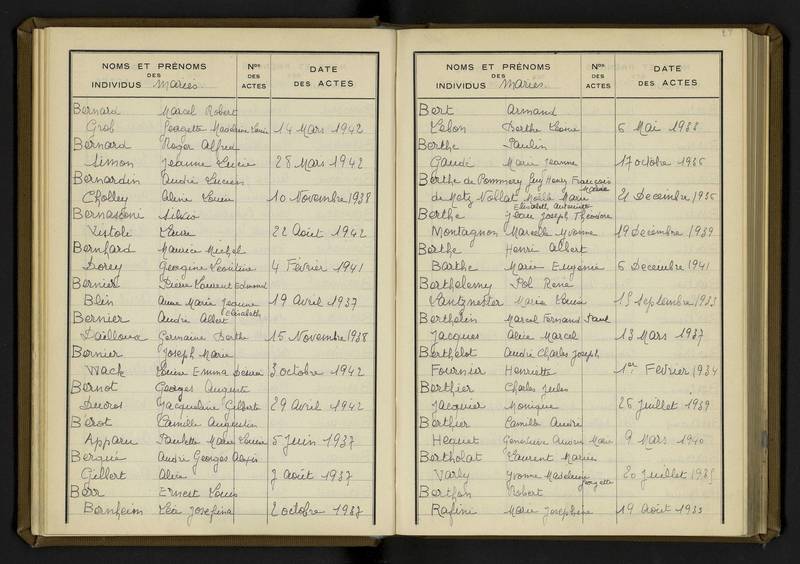 NOMS ET PRÉNOMS
DES
INDIVIDUS Mariés
Nos
DES
ACTES
DATE
DES ACTES
Bernard Marcel Robert
Grob Georgette Madeleine Louise 14 Mars 1942
Bernard Roger Alfred
Simon Jeanne Lucie 28 Mars 1942
Bernardin André Lucien
Cholley Aline Louise 10 Novembre 1938
Bernasconi Silvio
Vistoli Laure 22 Août 1942
Bernhard Maurice Michel
Dorey Georgine 4 Février 1941
Bernier Pierre Laurent Edmond
Blin Anne Marie Jeanne 19 Avril 1937
Elisabeth
Bernier André Albert
Dailloux Germaine Berthe 15 Novembre 1938
Bernier Joseph Marie
Wack Louise Emma 3 octobre 1942
Bernot Georges Auguste
Ducros Jacqueline Gilberte 29 Avril 1942
Bérot Camille Augustin
Apparu Paulette Marie Louise 5 Juin 1937
Berqué André Georges Alexis
Gillert Alice 7 août 1937
Berr Ernest Louis
Bernheim Léa Josefina 2 octobre 1937
NOMS ET PRÉNOMS
DES
INDIVIDUS Mariés
Nos
DES
ACTES
DATE
DES ACTES
Bert Armand
Lelon Berthe Léone 6 Mai 1933
Berthe Paulin
Gaudi Marie Jeanne 17 octobre 1936
Berthe de Pommery Guy Henry François
Marie
de Metz Noblat Moëlle Marie 21 Decembre 1935
Elisabeth Antoinette
Berthe Jean Joseph Théodore
Montagnon Marcelle Yvonne 19 Décembre 1939
Berthe Henri Albert
Barthe Marie Eugenie 6 Decembre 1941
Barthelemy Pol René
Marie Louise 15 Septembre 1933
Berthelin Marcel Fernand Paul
Jacques Alice Marcel 13 Mars 1937
Berthelot André Charles Joseph
Fournier Henriette 1er Février 1934
Berthier Charles Jules
Jacquier Monique 26 Juillet 1939
Berthier Camille André
Hequet Geneviève Marie 9 Mars 1940
Bertholat Laurent Marius
Varly Yvonne Madeleine 20 Juillet 1935
Georgette
Berthon Robert
Rafini Marie Josephine 19 Août 1933